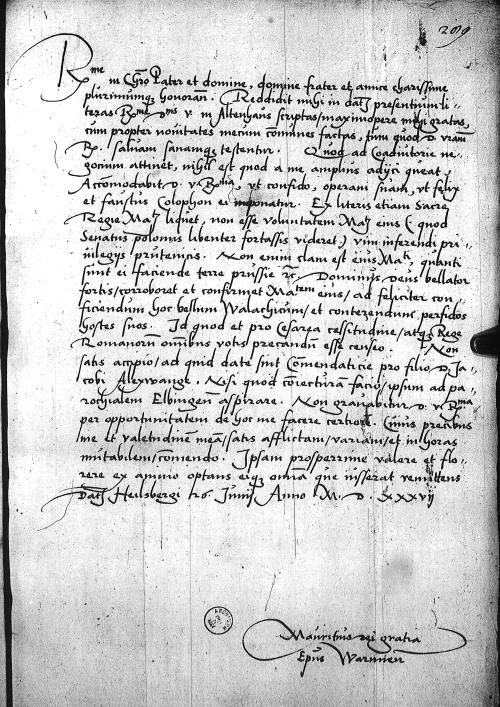 209
R me
in Chro Pater et domine, domine frater et amice charissime
plurimumq honoran. Reddidit mihi in dat presentium li-
teras R me D nis v. m Altenhaus scriptas/maximopere mihi gratas,
cum propter novitates mecum communes factas, tum quod D. vram
R. salvam sanamq testentur. Quod ad Coadiutorie ne-
gocium attinet, nihil est quod a me amplius adijci queat,
Accomodabit D. v. R ma, vt confido, operam suam, vt felix
et faustus Colophon ei imponatur. Ex literis etiam Sacre
Regie Mat liquet, non esse voluntatem Mat eius (quod
Senatus polonus libenter fortassis videret) vim inferendi pri-
uilegijs prutenicis. Non enim clam est eius Mati, quanti
sunt ei faciende terre prussie rc. Dominus Deus bellator
fortis/corroboret et confirmet Ma tem eius/ad feliciter con-
ficiendum hoc bellum Walachicum/et conterendum perfidos
hostes suos. Id quod et pro Cesarea celsitudine/atq Rege
Romanorum omnibus votis precandum esse censeo. Non
satis accipio/ad quid date sint Comendaticie pro filio D. Ja-
cobi Alexwange. Nisi quod coniecturam facio/ipsum ad pa-
rochialem Elbingen aspirare. Non gravabitur D. v. R ma
per opportunitatem de hoc me facere certiorē. Cuius precibus
me et valetudinē meā/satis afflictam/variam/et in horas
mutabilem/comendo. Ipsam prosperrime valere et flo-
rere ex animo optans eiq omnia que iusserat remittens
Dat Heilsbergi Junij Anno M. D. XXXVII
Mauritius dei gratia
Epus Warmien